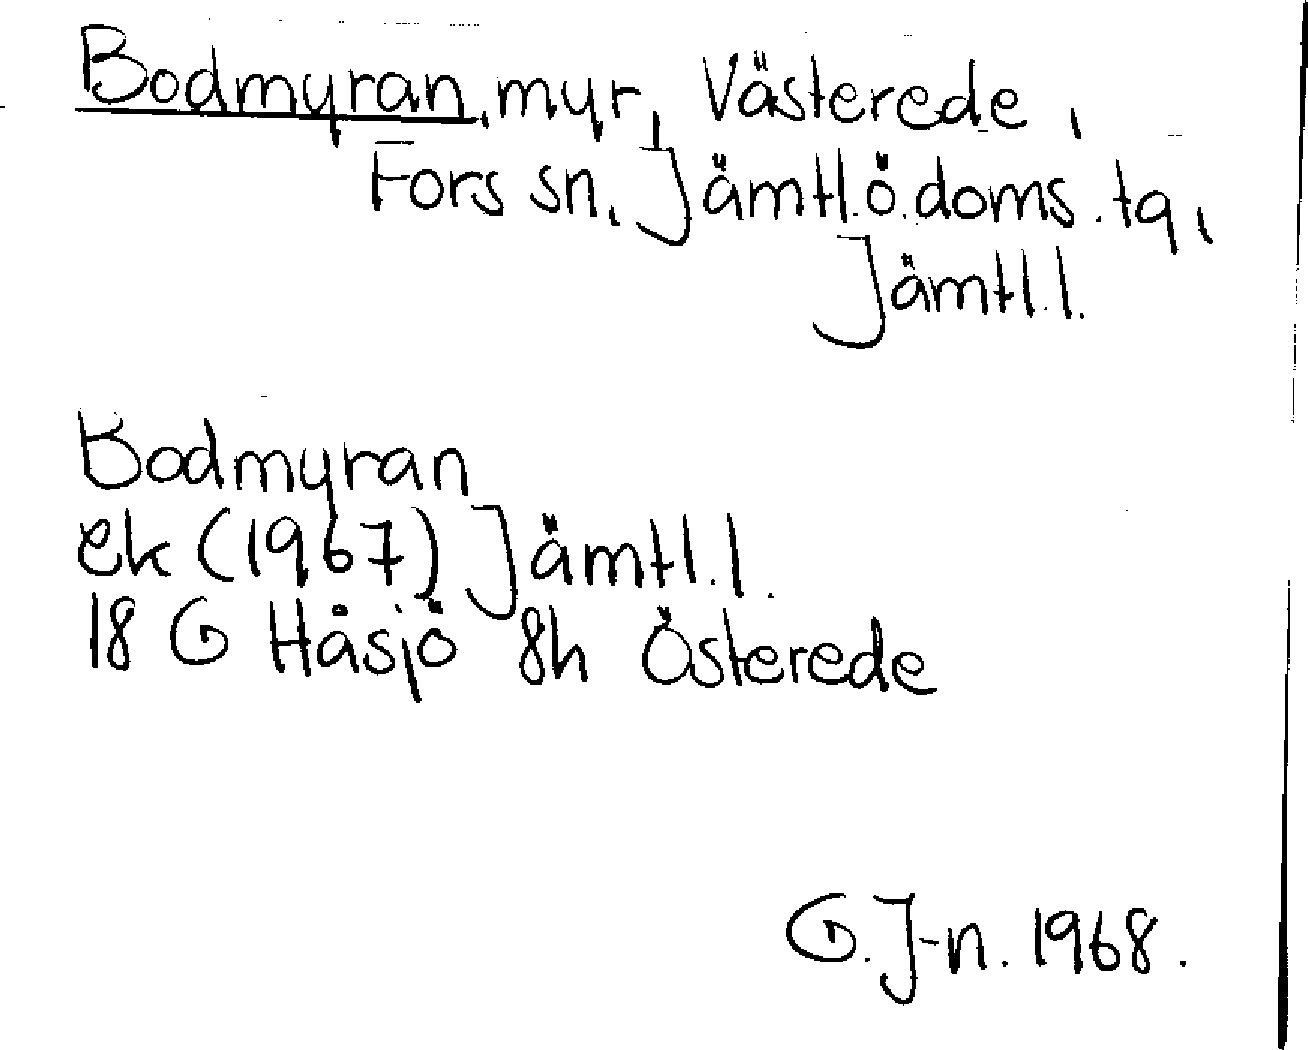 Bodmyran, myr, Västerede,
Fors sn, Jämtl.ö.doms.tg,
Jämtl.l.
Bodmyran
ek (1967) Jämtl.l.
18 G Håsjö 8h Österede
G.J-n. 1968.